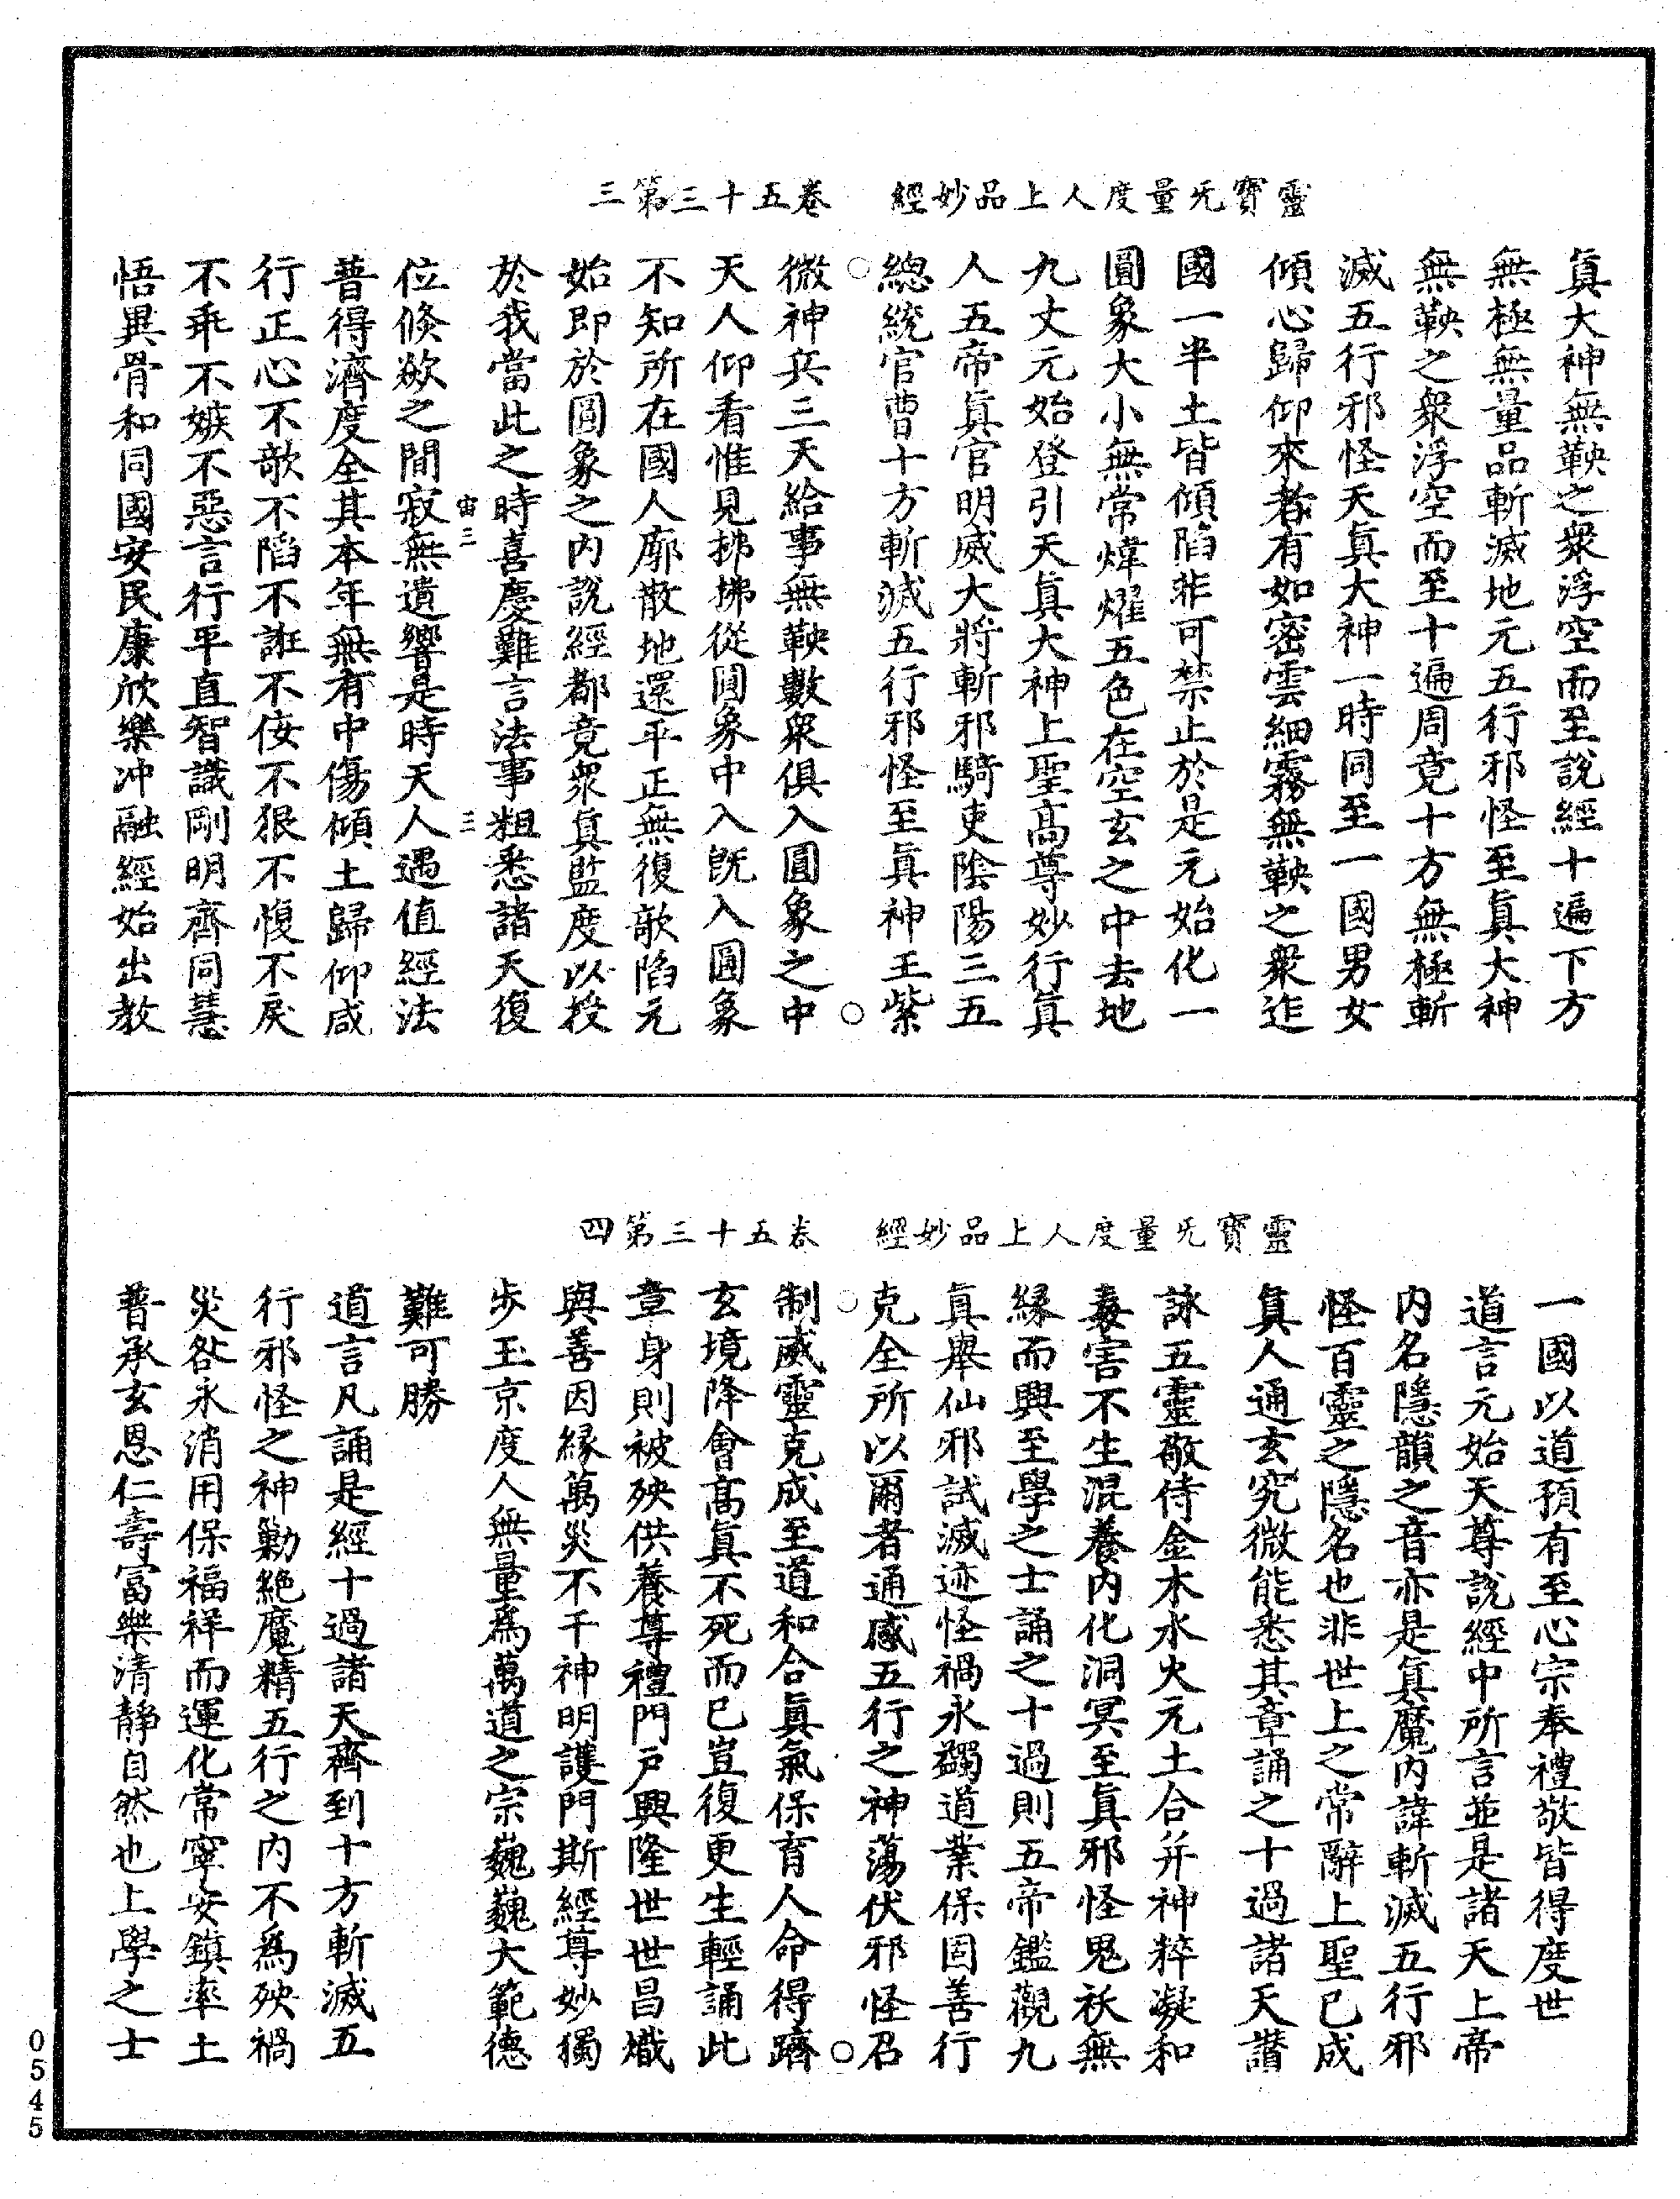 靈寶无量度人上品妙經　卷五十三第三
眞大神無鞅之衆浮空而至說經十遍下方
無極無量品斬滅地元五行邪怪至眞大神
無鞅之衆浮空而至十遍周竟十方無極斬
滅五行邪怪天眞大神一時同至一國男女
傾心歸仰來者有如密雲細霧無鞅之衆迮
國一半土皆傾陷非可禁止於是元始化一
圓象大小無常煒燿五色在空玄之中去地
九丈元始登引天眞大神上聖高尊妙行眞
人五帝眞官明威大將斬邪騎吏陰陽三五
總統官曹十方斬滅五行邪怪至眞神王紫
微神兵三天給事無鞅數衆俱入圓象之中
天人仰看惟見拂拂從圓象中入旣入圓象
不知所在國人廓散地還平正無復欹陷元
始即於圓象之內說經都竟衆眞監度以授
於我當此之時喜慶難言法事粗悉諸天復
位倏欻之間寂無遺響是時天人遇值經法
宙三　三
普得濟度全其本年無有中傷傾土歸仰咸
行正心不欹不陷不誑不侫不狠不愎不戾
不乖不嫉不惡言行平直智識剛明齊同慧
悟異骨和同國安民康欣樂冲融經始出教
靈寶无量度人上品妙經　卷五十三第四
一國以道預有至心宗奉禮敬皆得度世
道言元始天尊說經中所言並是諸天上帝
內名隱韻之音亦是眞魔內諱斬滅五行邪
怪百靈之隱名也非世上之常辭上聖已成
眞人通玄究微能悉其章誦之十過諸天讃
詠五靈敬侍金木水火元土合并神粹凝和
毒害不生混養內化洞冥至眞邪怪鬼袄無
緣而興至學之士誦之十過則五帝鑑觀九
眞舉仙邪試滅迹怪禍永蠲道業保固善行
克全所以爾者通感五行之神蕩伏邪怪召
制威靈克成至道和合眞氣保育人命得躋
玄境降會高眞不死而已豈復更生輕誦此
章身則被殃供養尊禮門戶興隆世世昌熾
與善因緣萬災不干神明護門斯經尊妙獨
步玉京度人無量爲萬道之宗巍巍大範德
難可勝
道言凡誦是經十過諸天齊到十方斬滅五
行邪怪之神勦絕魔精五行之內不爲殃禍
災咎永消用保福祥而運化常寧安鎮率土
普承玄恩仁壽富樂清靜自然也上學之士
0545